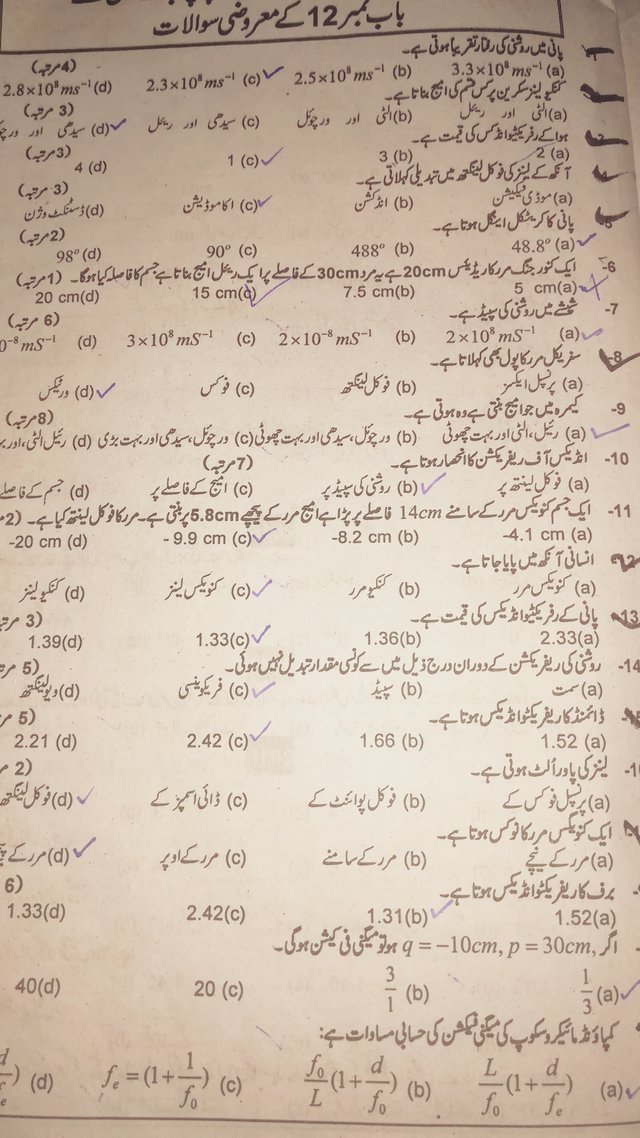 باب نمبر 12 کے معروضی سوالات
پانی میں روشنی کی رفتار تقریباً ہوتی ہے۔ (4 مرتبہ)
(a) 3.3×10⁸ms⁻¹ (b) 2.5×10⁸ms⁻¹ (c) 2.3×10⁸ms⁻¹ (d) 2.8×10⁸ms⁻¹
کنکیو لینز سکرین پر کس قسم کی امیج بناتا ہے۔ (3 مرتبہ)
(a) الٹی اور ریئل (b) الٹی اور ورچوئل (c) سیدھی اور ریئل (d) سیدھی اور
ہوا کے رفریکٹو انڈکس کی قیمت ہے۔ (3 مرتبہ)
(a) 2 (b) 3 (c) 1 (d) 4
آنکھ کے لینز کی فوکل لینگتھ میں تبدیلی کہلاتی ہے۔ (3 مرتبہ)
(a) موڈی فیکیشن (b) انڈکشن (c) اکاموڈیشن (d) ڈسٹنکٹ وژن
پانی کا کریٹیکل اینگل ہوتا ہے۔ (2 مرتبہ)
(a) 48.8° (b) 488° (c) 90° (d) 98°
-6 ایک کنورجنگ مرر کا ریڈیئس 20cm ہے یہ مرر 30cm کے فاصلے پر ایک ریئل امیج بناتا ہے جسم کا فاصلہ کیا ہوگا۔ (1 مرتبہ)
(a) 5 cm (b) 7.5 cm (c) 15 cm (d) 20 cm
-7 شیشے میں روشنی کی سپیڈ ہے۔ (6 مرتبہ)
(a) 2×10⁸mS⁻¹ (b) 2×10⁻⁸mS⁻¹ (c) 3×10⁸mS⁻¹ (d) 0⁻⁸mS⁻¹
-8 سفریکل مرر کا پول بھی کہلاتا ہے۔
(a) پرنسپل ایکسز (b) فوکل لینگتھ (c) فوکس (d) ورٹیکس
-9 کیمرہ میں جو امیج بنتی ہے وہ ہوتی ہے۔ (8 مرتبہ)
(a) رئیل، الٹی اور بہت چھوٹی (b) ورچوئل، سیدھی اور بہت چھوٹی (c) ورچوئل، سیدھی اور بہت بڑی (d) رئیل الٹی، اور
-10 انڈیکس آف ریفریکشن کا انحصار ہوتا ہے۔ (7 مرتبہ)
(a) فوکل لینتھ پر (b) روشنی کی سپیڈ پر (c) امیج کے فاصلے پر (d) جسم کے فاصلے
-11 ایک جسم کنویکس مرر کے سامنے 14cm فاصلے پر پڑا ہے امیج مرر کے پیچھے 5.8cm پر بنتی ہے۔ مرر کا فوکل لینتھ کیا ہے۔ (2
(a) -4.1 cm (b) -8.2 cm (c) -9.9 cm (d) -20 cm
انسانی آنکھ میں پایا جاتا ہے۔
(a) کنویکس مرر (b) کنکیو مرر (c) کنویکس لینز (d) کنکیو لینز
-13 پانی کے رفریکٹو انڈیکس کی قیمت ہے۔ (3
(a) 2.33 (b) 1.36 (c) 1.33 (d) 1.39
-14 روشنی کی ریفریکشن کے دوران درج ذیل میں سے کونسی مقدار تبدیل نہیں ہوتی۔ (5
(a) سمت (b) سپیڈ (c) فریکوئنسی (d) ویولینگتھ
ڈائمنڈ کا ریفریکٹو انڈیکس ہوتا ہے۔ (5
(a) 1.52 (b) 1.66 (c) 2.42 (d) 2.21
لینز کی پاور اُلٹ ہوتی ہے۔ (2
(a) پرنسپل فوکس کے (b) فوکل پوائنٹ کے (c) ڈائی اسپیڑ کے (d) فوکل لینگتھ
ایک کنویکس مرر کا فوکس ہوتا ہے۔
(a) مرر کے نیچے (b) مرر کے سامنے (c) مرر کے اوپر (d) مرر کے
برف کا ریفریکٹو انڈیکس ہوتا ہے۔ (6
(a) 1.52 (b) 1.31 (c) 2.42 (d) 1.33
اگر q = −10cm, p = 30cm, ہو تو میگنی فی کیشن ہوگی۔
(a) 1/3 (b) 3/1 (c) 20 (d) 40
کمپاؤنڈ مائیکروسکوپ کی میگنی فیکشن کی حسابی مساوات ہے:
(a) L/f₀(1+d/fₑ) (b) f₀/L(1+d/f₀) (c) fₑ=(1+1/f₀) (d)